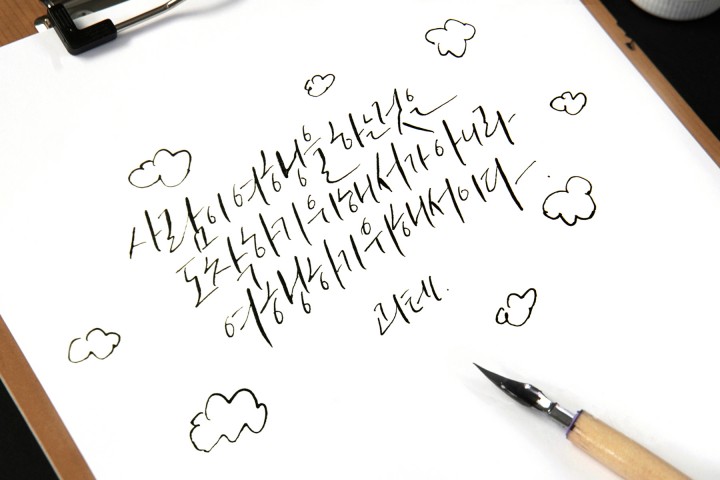 사람이 여행을 하는 것은
도착하기 위해서가 아니라
여행하기 위해서이다.
괴테.